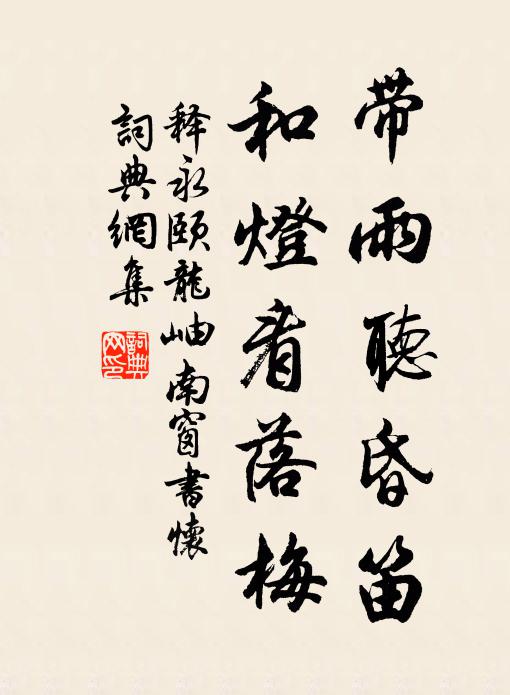 带雨聽昏笛
和燈看落梅
释永颐龍岫南窗書懷
詞典網集
詞典
网印